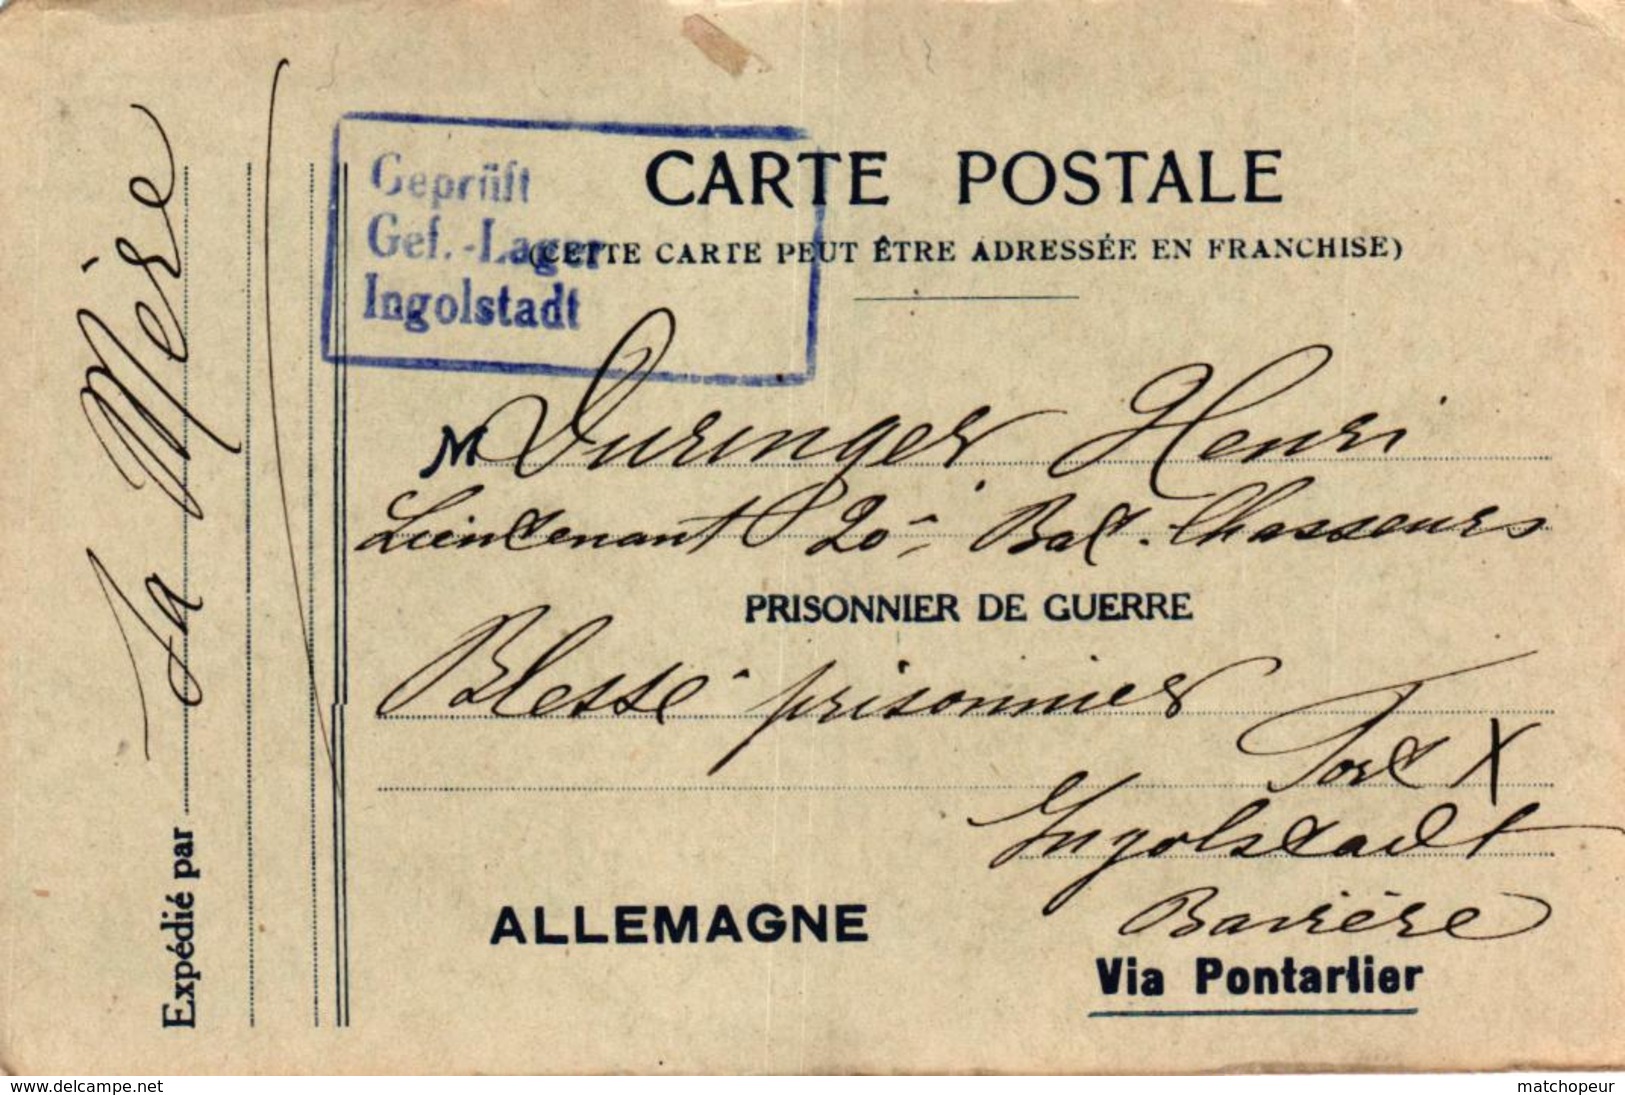 Geprüft
Gef.-Lager
Ingolstadt
CARTE POSTALE
(CETTE CARTE PEUT ÊTRE ADRESSÉE EN FRANCHISE)
M Duringer Henri
Lieutenant 20e Bat. Chasseurs
PRISONNIER DE GUERRE
Blessé prisonnier
Fort X
Ingolstadt
Bavière
ALLEMAGNE
Via Pontarlier
Expédié par Sa Mère
www.delcampe.net
matchopeur